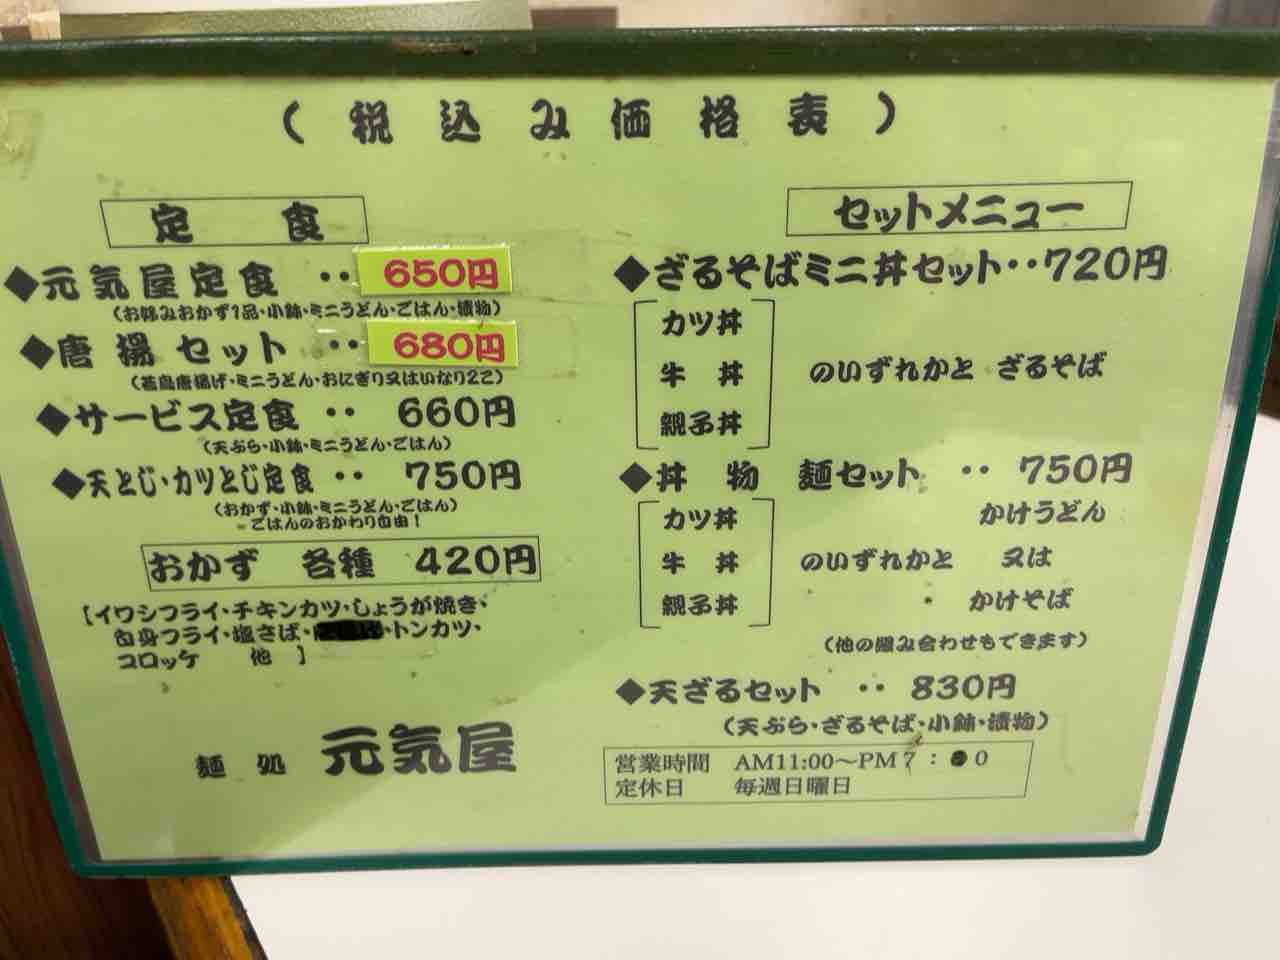 （税込み価格表）
定食
◆元気屋定食 ‥ 650円
（お好みおかず1品・小鉢・ミニうどん・ごはん・漬物）
◆唐揚セット ‥ 680円
（若鳥唐揚げ・ミニうどん・おにぎり又はいなり2こ）
◆サービス定食 ‥ 660円
（天ぷら・小鉢・ミニうどん・ごはん）
◆天とじ・カツとじ定食 ‥ 750円
（おかず・小鉢・ミニうどん・ごはん）
ごはんのおかわり自由！
おかず 各種 420円
［イワシフライ・チキンカツ・しょうが焼き・
白身フライ・塩さば・ ・トンカツ・
コロッケ 他 ］
麺処 元気屋
セットメニュー
◆ざるそばミニ丼セット‥720円
カツ丼
牛丼 のいずれかと ざるそば
親子丼
◆丼物 麺セット ‥ 750円
カツ丼 かけうどん
牛丼 のいずれかと 又は
親子丼 かけそば
（他の組み合わせもできます）
◆天ざるセット ‥ 830円
（天ぷら・ざるそば・小鉢・漬物）
営業時間 AM11:00〜PM7： 0
定休日 毎週日曜日